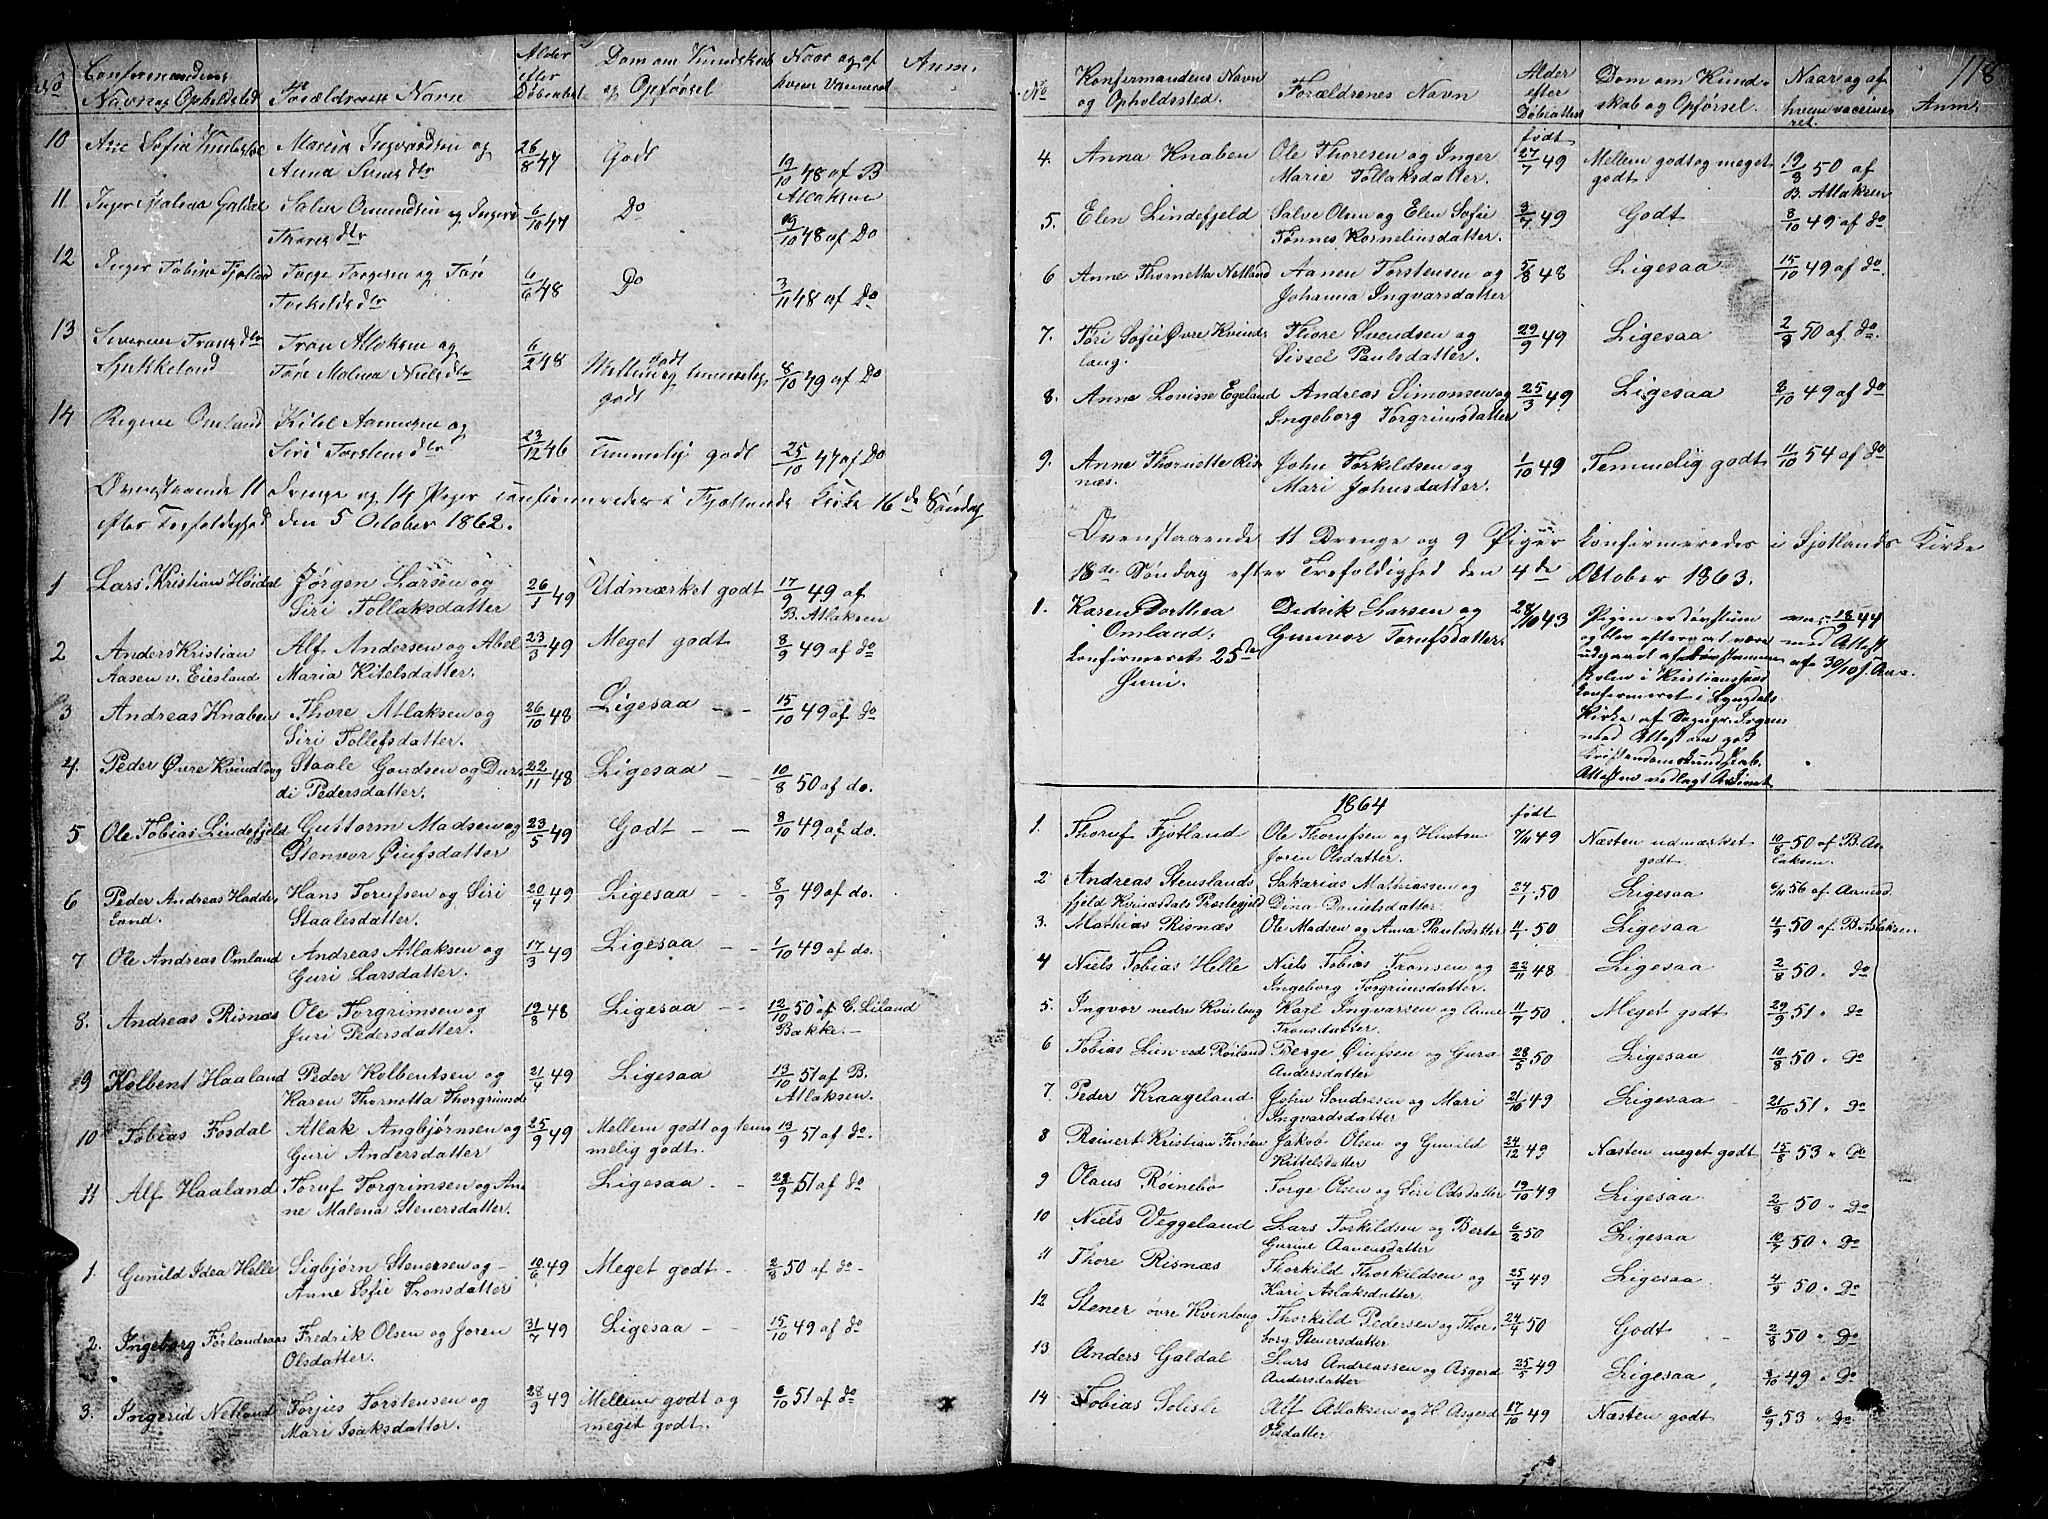 No Confirmandens Navn og Opholdsted | Forældrenes Navn | Alder efter Døbeattest | Dom om Kundskab og Opførsel | Naar og af hvem Vaccineret | Anm.
10 Ane Sofia | Ingvardsen og Anna dtr | 26/8 47 | Godt | 19/10 48 af B Atlaksen
11 Inger Malena Galdal | Salve Omundsen og Inger Trons dtr | 6/10 47 | Do | 19/10 48 af Do
12 Inger Tobine | Torgersen og Torkilds dtr | 6/6 48 | Do | 3/11 48 af Do
13 Trons dtr | Tron Atlaksen og Malena Niels dtr | 6/2 48 | Mellem godt og temmelig godt | 8/10 49 af Do
14 Omland | Kitel Aanensen og Siri Torstens dtr | 23/12 46 | Temmelig godt | 25/10 47 af Do
Ovenstaaende 11 Drenge og 14 Piger confirmeredes i Fjotlands Kirke 16de Søndag
efter Trefoldighed den 5 October 1862.
1 Lars Kristian Høidal | Jørgen Larsen og Siri Tollaksdatter | 26/1 49 | Udmærket godt | 17/9 49 af B. Atlaksen
2 Anders Kristian Aasen v. Eiesland | Alf Andersen og Abel Maria Kitelsdatter. | 23/3 49 | Meget godt | 8/9 49 af do
3 Andreas Knaben | Thore Atlaksen og Siri Tollefsdatter. | 26/10 48 | Ligesaa - - | 15/10 49 af do
4. Peder Øvre Kvindlog | Staale Gundsen og Durdi Pedersdatter. | 22/11 48 | Ligesaa - - | 10/8 50 af do.
5 Ole Tobias Lindefjeld | Guttorm Madsen og Stenvor Øiufsdatter | 23/5 49 | Godt - - | 8/10 49 af do.
6 Peder Andreas Haddeland. | Hans Torufsen og Siri Staalesdatter. | 20/4 49 | Ligesaa - - | 8/9 49 af do.
7 Ole Andreas Omland | Andreas Atlaksen og Guri Larsdatter. | 17/3 49 | Ligesaa - - | 1/10 49 af do.
8. Andreas Risnæs | Ole Torgrimsen og Juri Pedersdatter. | 19/8 48 | Ligesaa - - | 12/10 50 af C. Liland Bakke. -
9 Kolbent Haaland | Peder Kolbentsen og Karen Thornetta Thorgrimsd | 21/4 49 | Ligesaa | 13/10 51 af B. Atlaksen.
10 Tobias Fosdal | Atlak Angbjørnsen og Guri Andersdatter | 25/9 49 | Mellem godt og temmelig godt. | 13/9 51 af do.
11 Alf Haaland | Toruf Torgrimsen og Anne Malena Stenersdatter. | | Ligesaa - - | 29/9 51 af do
1. Gunild Idea Helle | Sigbjørn Stenersen og Anne Sofie Tronsdatter | 10/6 49 | Meget godt - | 2/8 50 af do -
2. Ingeborg | Fredrik Olsen og Joren Olsdatter. | 31/7 49 | Ligesaa - - | 15/10 49 af do
3. Ingerid Netland | Torjus Torstensen og Mari Isaksdatter. | 28/9 49 | Mellem godt og meget godt. | 6/10 51 af do
118
No | Konfirmandens Navn og Opholdssted. | Forældrenes Navn | Alder efter Døbeattest | Dom om Kundskab og Opførsel. | Naar og af hvem vaccineret. | Anm.
født
4. Anna Knaben | Ole Thoresen og Inger Marie Tollaksdatter. | 27/7 49 | Mellem godt og meget godt. | 19/8 50 af B. Atlaksen
5. Elen Lindefjeld | Salve Olsen og Elen Sofie Tønnes Korneliusdatter. | 3/7 49 | Godt | 8/10 49 af do
6 Anne Thornetta Netland | Aanen Torstensen og Johanna Ingvarsdatter | 5/8 48 | Ligesaa | 15/10 49 af do.
7. Tori Sofie Øvre Kvindlaug | Thore Svendsen og Sissel Paulsdatter. | 29/9 49 | Ligesaa | 2/9 50 af do.
8. Anne Lovisse Egeland | Andreas Simonsen og Ingeborg Torgrimsdatter | 25/3 49 | Ligesaa | 8/10 49 af do
9. Anne Thornette Risnæs. | John Torkildsen og Mari Johnsdatter. | 1/10 49 | Temmelig godt | 11/10 54 af do
Ovenstaaende 11 Drenge og 9 Piger konfirmeredes i Fjotlands Kirke
18de Søndag efter Trefoldighed den 4de Oktober 1863.
1. Karen Dorthea Omland, konfirmeret 25de Juni. | Didrik Larsen og Gunvor Torufsdatter. | 28/10 43 | Pigen er døvstum og blev efter at være udgaaet af Døvstummeskolen i Kristianssand konfirmeret i Lyngdals Kirke af med Attest om god Kristendomskundskab. Attesten vedlagt Arkivet | 18/9 44 med Attest af 30/10 f. Aar.
1864
født
1. Thoruf Fjotland | Ole Thorufsen og Hustru Joren Olsdatter. | 7/11 49 | Næsten udmærket godt | 10/8 50 af B. Aslaksen.
2 Andreas Stenslands fjeld Kvinesdals Præstegjeld | Sakarias Mathiassen og Dina Danielsdatter | 27/1 50 | Ligesaa | 6/10 56 af
3. Mathias Risnæs | Ole Madsen og Anna Paulsdatter | 11/1 50 | Ligesaa | 11/9 50 af B. Aslaksen.
4 Niels Tobias Helle | Niels Tobias Tronsen og Ingeborg Torgrimsdatter. | 22/11 48 | Ligesaa | 2/8 50 " do
5. Ingvor nedre Kvinlog | Karl Ingvarsen og Anne Tronsdatter | 11/7 50 | Meget godt | 29/9 51 " do
6 Tobias Lien ved Røiland | Berge Øiufsen og Guro Andersdatter | 28/5 50 | Ligesaa | 10/8 50 " Do
7. Peder Kraageland | John Sondresen og Mari Ingvardsdatter | 21/10 49 | Ligesaa - | 21/10 51 " Do
8 Reinert Kristian | Jakob Olsen og Gunild Kittelsdatter | 24/12 49 | Næsten meget godt | 15/8 53 " Do
9 Olaus Røinebo | Torge Olsen og Siri Odsdatter | 19/10 49 | Ligesaa - | 2/8 50 " Do
10 Niels Veggeland | Lars Torkildsen og Berte Gurine Aanensdatter | 6/2 50 | Ligesaa | 10/7 50 " Do
11 Thore Risnæs | Thorkild Thorkildsen og Kari Aslaksdatter. | 25/4 49 | Ligesaa | 4/9 50 " Do
12 Stener øvre Kvinlog | Thorkild Pedersen og Thorborg Stenersdatter | 24/4 50 | Godt - | 2/8 50 " Do
13 Anders Galdal | Lars Andreassen og Asgerd Andersdatter | 25/5 49 | Ligesaa | 8/10 49 " Do
14 Tobias Solisli | Alf Atlaksen og H Asgerd Olsdatter | 17/10 49 | Næsten godt | 6/9 53 " Do